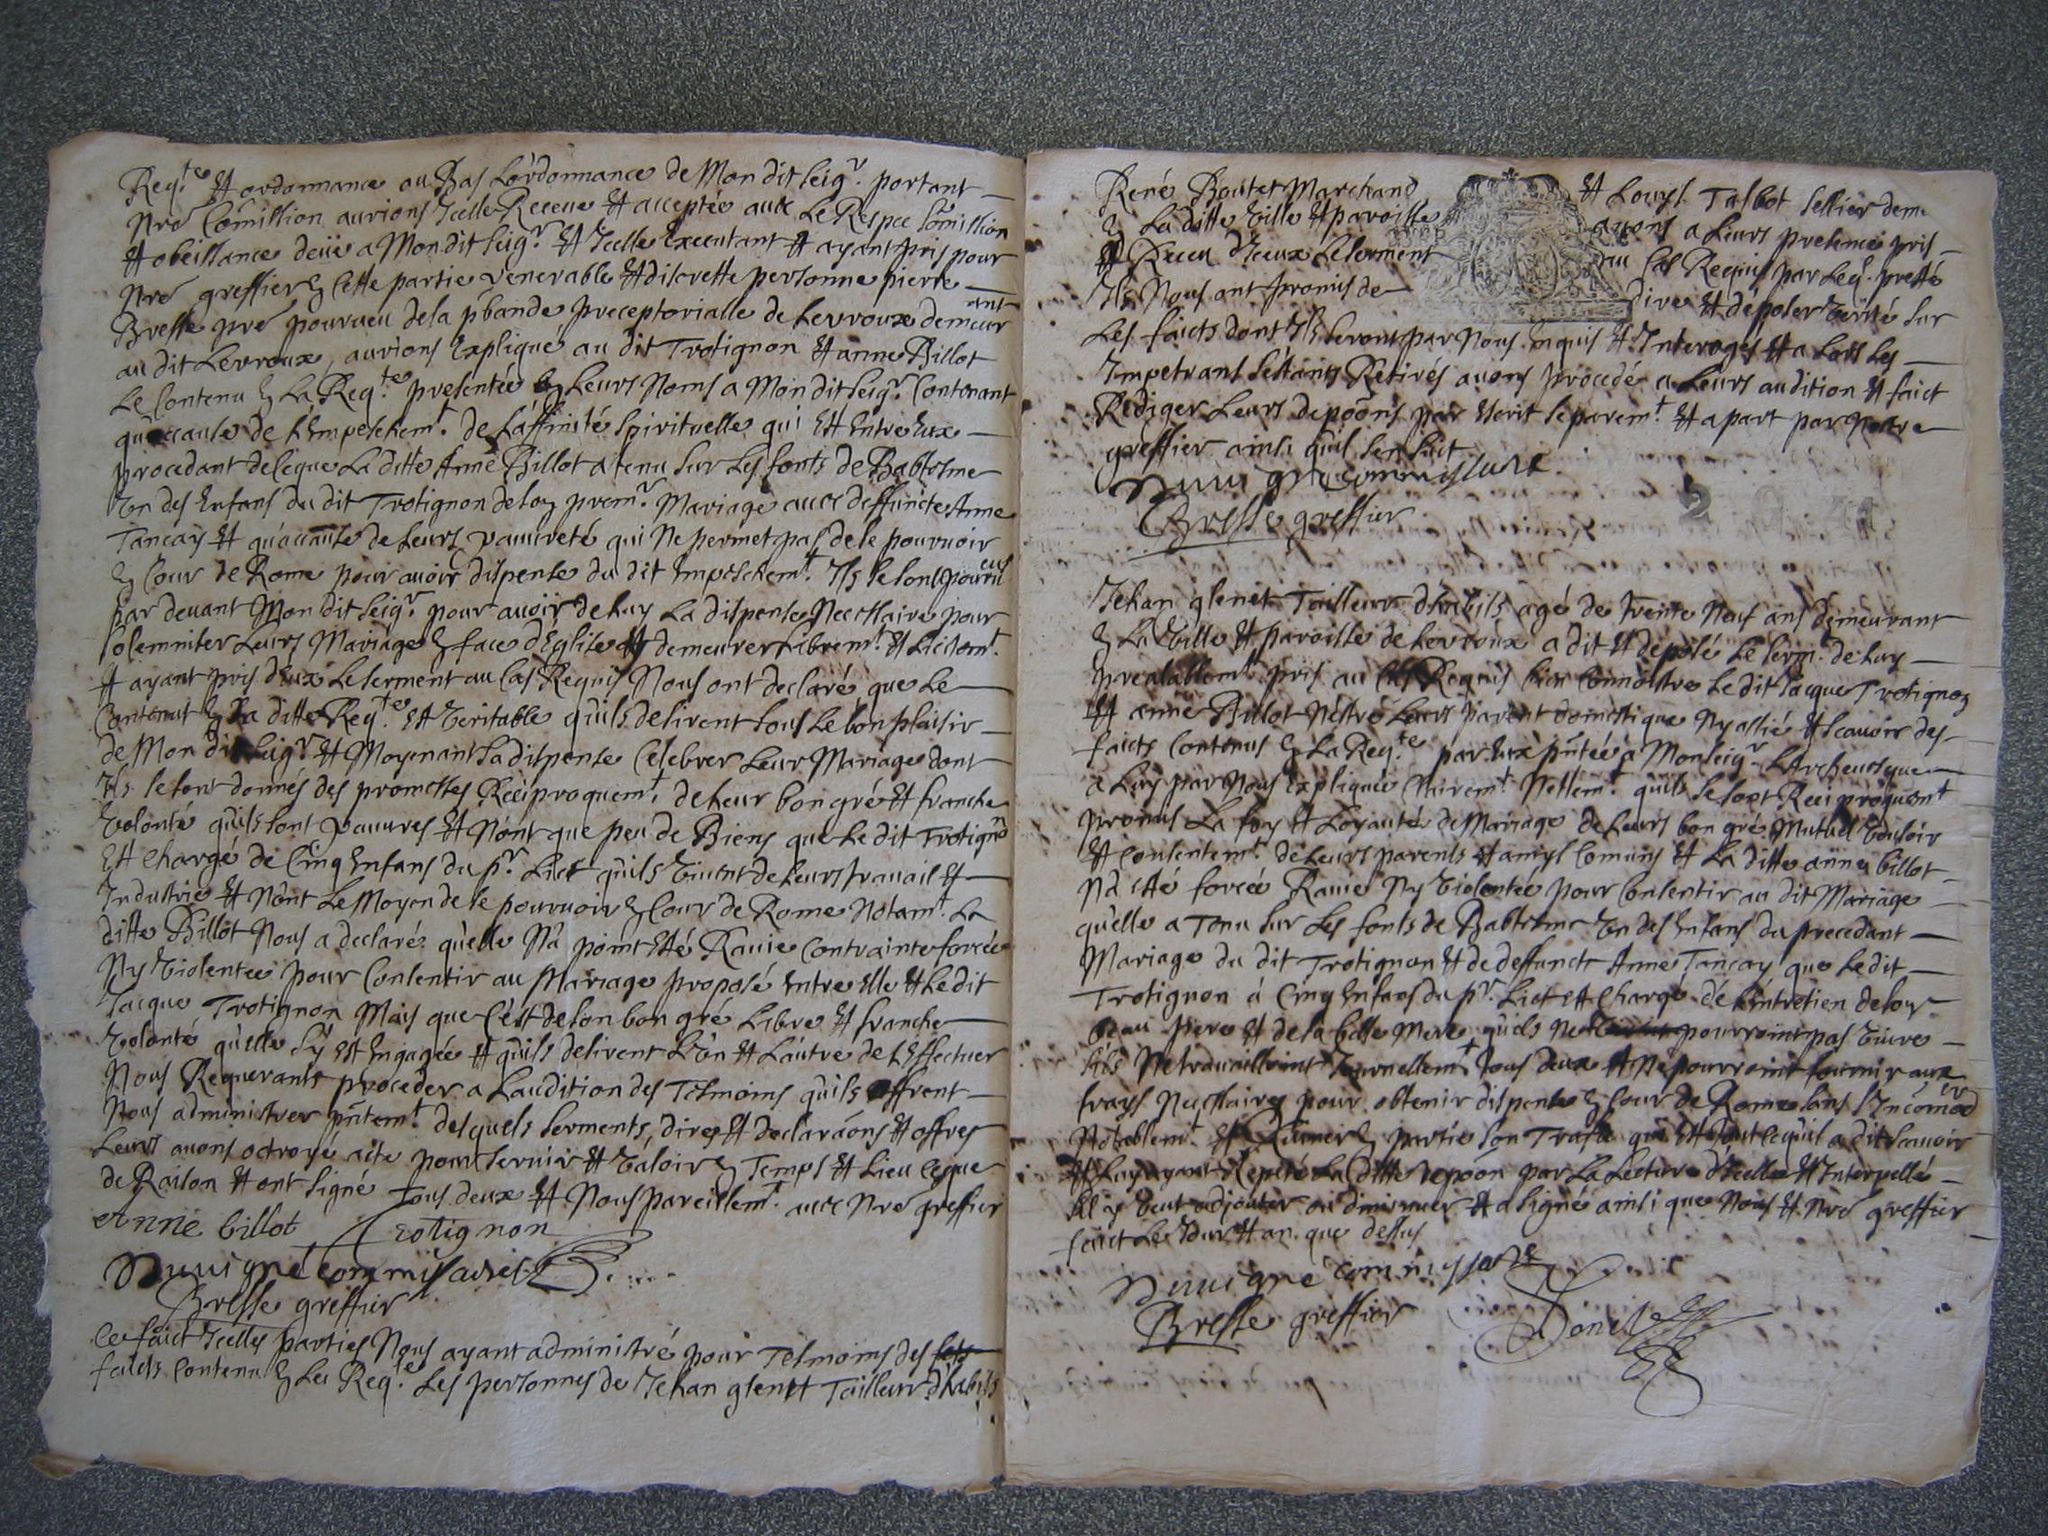 Reqte et ordonnance au Bas L'ordonnance de Mondit seigr. portant
Nre Comission aurions Icelle Receue et acceptée avec Le Respec soûmission
et obeissance deüe a Mondit seigr. et Icelle Executant et ayant pris pour
Nre greffier en Cette partie venerable et discrette personne pierre
Bresse pre pourveu de la pbande preceptorialle de Levroux demeurant
au dit Levroux, aurions Expliqué au dit Trotignon et anne Billot
Le Contenu en La Reqte presentée en Leurs Noms a Mondit seigr. Contenant
qu'accause de L'Empeschemt. de L'affinité spirituelle qui est Entre Eux
procedant de ce que La ditte Anne Billot a tenu sur Les fonts de Babtesme
Un des Enfans du dit Trotignon de son premr. Mariage avec deffuncte Anne
Tançay et qu'accause de Leurs pauvreté qui Ne permet pas de se pourvoir
en Cour de Rome pour avoir dispense du dit Empeschemt. Ils se sont pourveus
par devant Mondit seigr. pour avoir de Luy La dispense Necessaire pour
solemniser Leurs Mariage en face d'Eglise et demeurer Libremt. et Licitemt.
et ayant pris d'Eux Le serment au Cas Requis Nous ont declaré que Le
Contenu en La ditte Reqte est Veritable quils desirent sous Le bon plaisir
de Mondit seigr. et Moyenant sa dispense Celebrer Leur Mariage dont
Ils se sont donnés des promesses Reciproquemt. de Leur bon gré et franche
Volonté quils sont pauvres et N'ont que peu de Biens que Le dit Trotignon
est Chargé de Cinq Enfans du pr. Lict quils Vivent de Leurs travail et
Industrie et N'ont Le Moyen de se pourvoir en Cour de Rome Notamt. La
ditte Billot Nous a declaré qu'elle N'a point esté Ravie Contrainte forcée
Ny Violentée pour Consentir au Mariage proposé Entre elle et Ledit
Jacque Trotignon Mais que C'est de son bon gré Libre et franche
Volonté qu'elle s'y est Engagée et quils desirent L'Un et L'autre de L'Effectuer
Nous Requerants proceder a L'audition des Tesmoins quils offrent
Nous administrer pntemt. desquels serments, dires et declaraons et offres
Leurs avons octroyé acte pour servir et Valoir en Temps et Lieu ce que
de Raison et ont signé Tous deux et Nous pareillemt. avec Nre greffier
Anne billot Trotignon
commissaire
Bresse greffier
Ce faict Icelles parties Nous ayant administré pour Tesmoins des
faicts Contenu en La Reqte Les personnes de Jehan glenet Tailleur d'habits
René Boutet Marchand et Louys Talbot sellier dem.
en La ditte Ville et paroisse avons a Leurs presence pris
et Receu d'Iceux Le serment au Cas Requis par Leql. presté
Ils Nous ont promis de dire et deposer Verité sur
Les faicts dont Ils seront par Nous Enquis et Interogés et a Lors Les
Impetrans s'éstants Retirés avons procedé a Leurs audition et faict
Rediger Leurs depoõns par Escrit separemt. et apart par Nostre
greffier ainsi qu'il sensuit
commissaire
Bresse greffier
Jehan glenet Tailleur d'habits agé de trente Neuf ans demeurant
en La Ville et paroisse de Levroux a dit et deposé Le serm. de Luy
prealablemt. pris au Cas Requis bien Connoistre Le dit Jacque Trotignon
et anne Billot N'estre Leurs parent domestique Ny allié et scavoir des
faicts Contenus en La Reqte par Eux pntée a Monseigr. L'Archevesque
a Luy par Nous Expliquée Clairemt. Nettemt. quils se sont Reciproquemt
promis La foy et Loyauté de Mariage de Leurs bon gré Mutuel Vouloir
et Consentemt. de Leurs parents et amys Comuns et La ditte anne billot
N'a esté forcée Ravie Ny Violentée pour Consentir au dit Mariage
qu'elle a Tenu sur Les fonts de Babtesme Un des Enfans du precedant
Mariage du dit Trotignon et de deffuncte Anne Tançay que Ledit
Trotignon a Cinq Enfans du pr. Lict est Chargé de L'entretien de son
beau pere et de sa belle Mere quils ne pourroint pas Vivre
sils Ne travailloint Tous deux et Ne pourroint fournir aux
frays Necessaires pour obtenir dispense en Cour de Rome sans s'Incomoder
Notablemt. et Ruiner en partie son Trafic qui est Tout ce qu'il a dit scavoir
et Luy ayant Repeté La ditte depoõn par La Lecture d'Icelle et Interpellé
sil y Veut adjouter ou diminuer et a signé ainsi que Nous et Nre greffier
faict Les Jour et an que dessus
commissaire
Bresse greffier